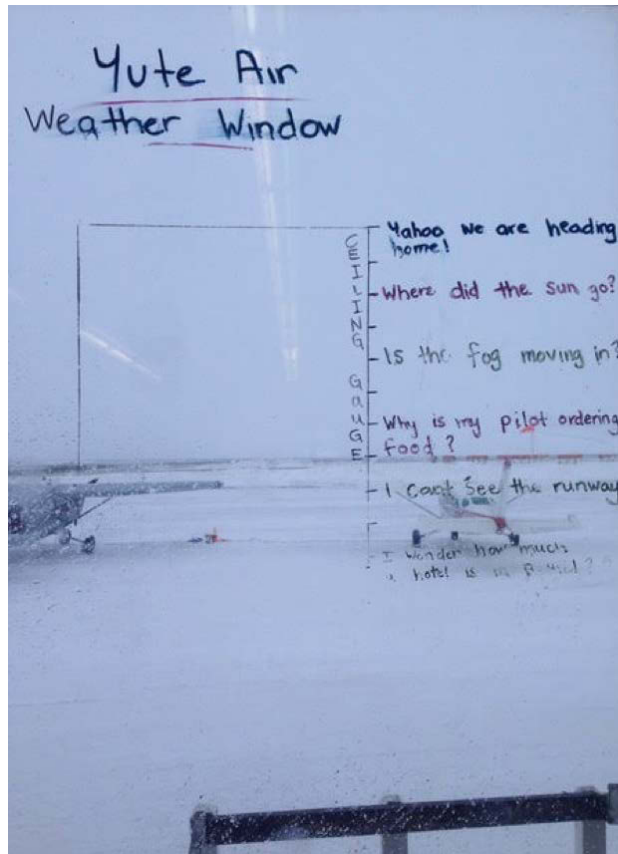 Yute Air
Weather Window
CEILING GAUGE
Yahoo we are heading
home!
Where did the sun go?
Is the fog moving in?
Why is my pilot ordering
food?
I can't see the runway
I wonder how much
a hotel is in